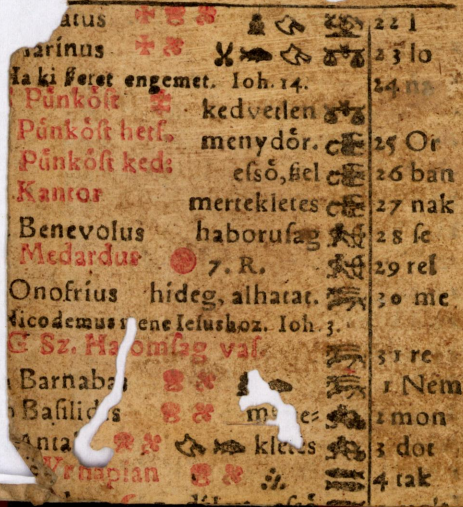 atus 22 I
arinus 23 lo
Ha ki ſzeret engemet. Ioh. 14. 24 na
Púnkóſt kedvetlen
Púnkóſt hetf. menydőr. 25 Or
Púnkóſt ked: eſső, ſzel 26 ban
Kantor mertekletes 27 nak
Benevolus haboruſag 28 ſe
Medardus 7. R. 29 reſ
Onofrius hideg, alhatat. 30 me
Nicodemus mene Ieſushoz. Ioh. 3.
G Sz. Haromſag vaſ. 31 re
Barnabas 1 Nem
Baſilides 2 mon
Anta kletes 3 dot
4 tak